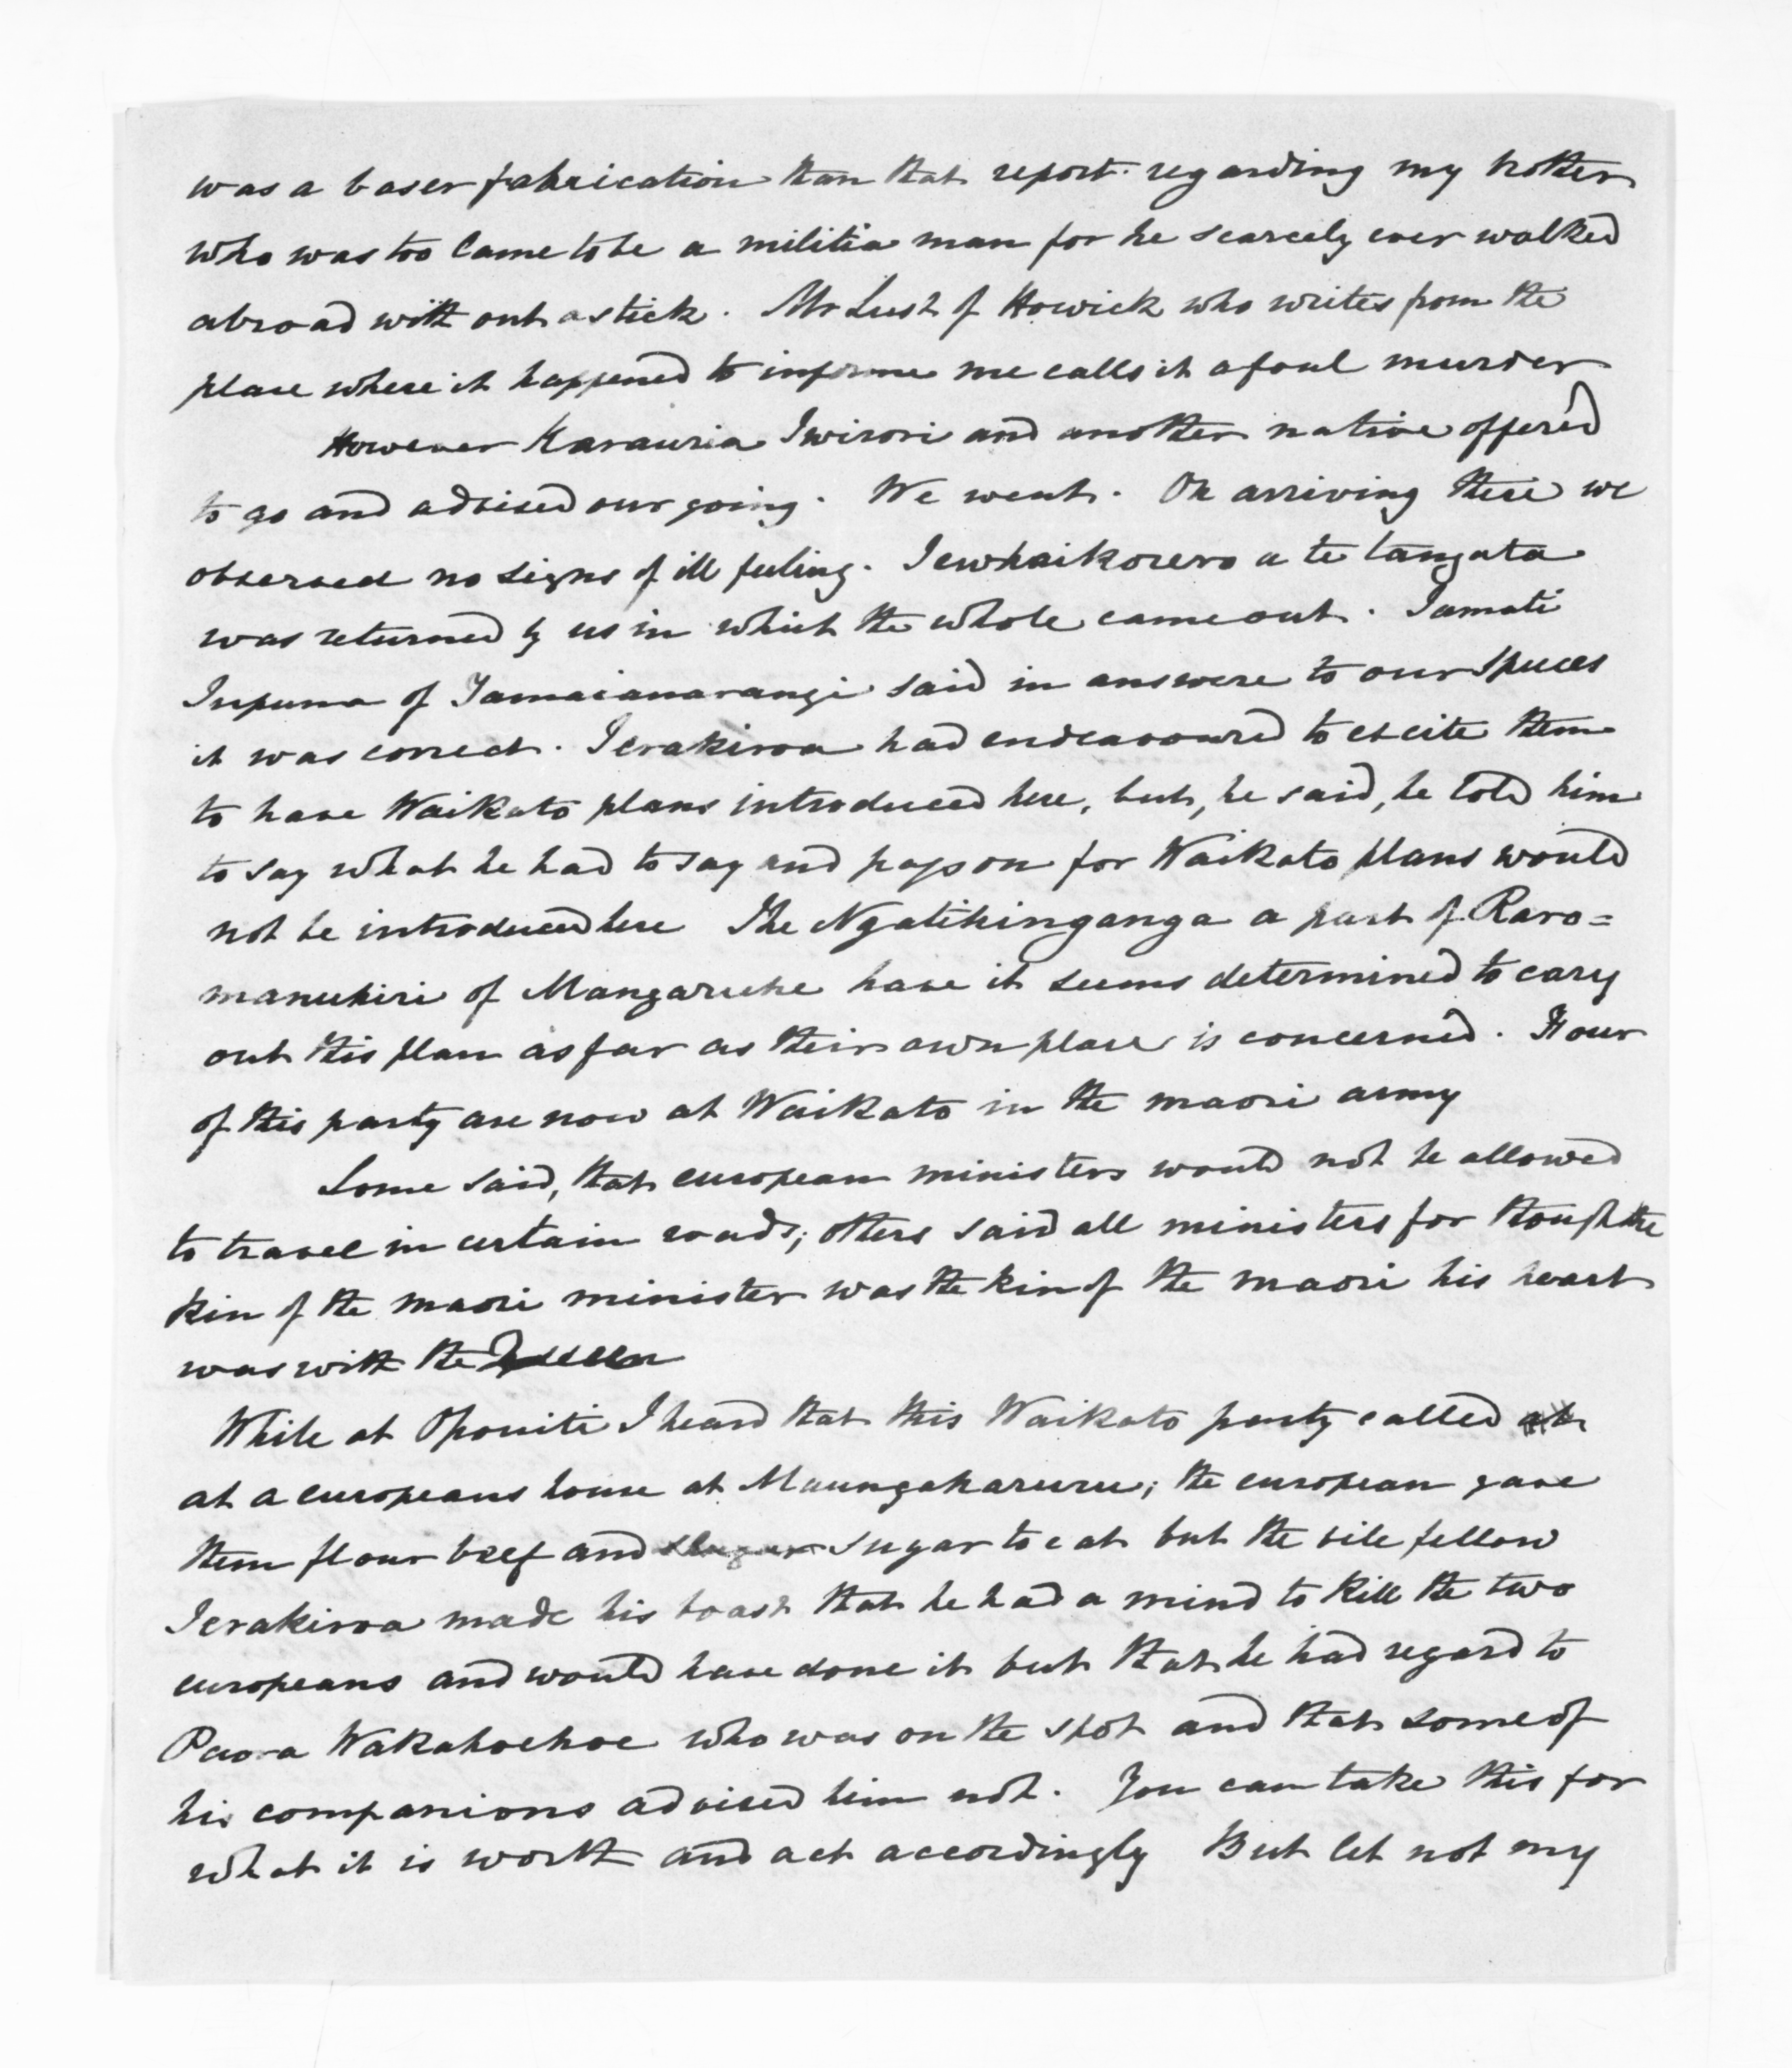 was a baser fabrication than that report regarding my brother
who was too lame to be a militia man for he scarcely ever walked
abroad without a stick. Mr Lush of Howick who writes from the
place where it happened to informe me calls it a foul murder
However Karauria Iwirori and another native offered
to go and advised our going. We went. On arriving there we
observed no signs of ill feeling. Tewhaikorero a te tangata
was returned by us in which the whole came out. Tamati
Tupuna of Tamaianarangi said in answere to our speeces
it was correct. Terakiroa had endeavoured to excite them
to have Waikato plans introduced here, but, he said, he told him
to say what he had to say and pass on for Waikato plans would
not be introduced here The Ngatihinganga a part of Raro=
manuhiri of Mangaruhe have it seems determined to cary
out this plan as far as their own place is concerned. Four
of this party are now at Waikato in the maori army
Some said, that european ministers would not be allowed
to travel in certain roads; others said all ministers for though the
kin of the maori minister was the kin of the maori his heart
was with the Queen
While at Opouiti I heard that this Waikato party called at
at a europeans house at Maungaharuru; the european gave
them flour beef and shugar sugar to eat but the vile fellow
Terakiroa made his boast that he had a mind to kill the two
europeans and would have done it but that he had regard to
Paora Wakahoehoe who was on the spot and that some of
his companions advised him not. You can take this for
what it is worth and act accordingly But let not my